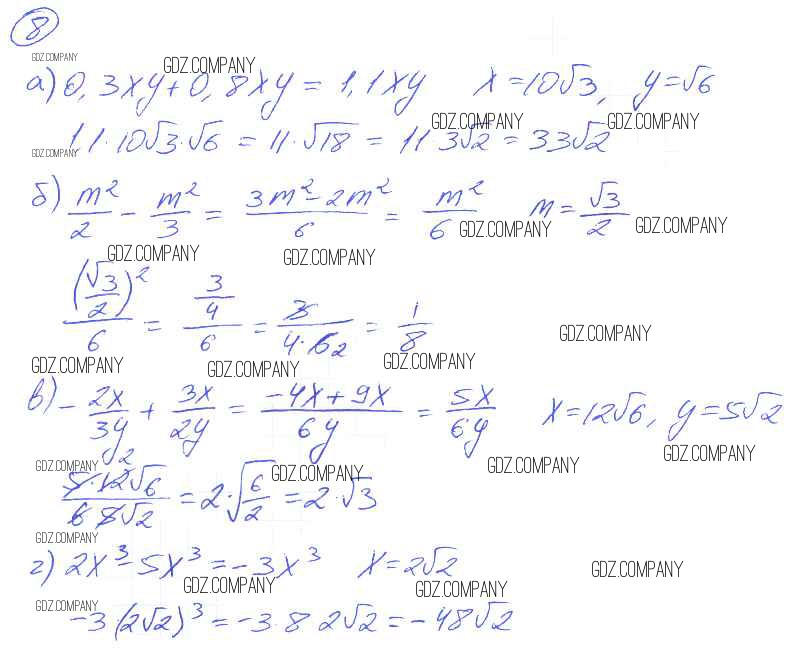 8
GDZ.COMPANY GDZ.COMPANY
а) 0,3xy + 0,8xy = 1,1xy x = 10√3, y = √6
GDZ.COMPANY GDZ.COMPANY
11·10√3·√6 = 11·√18 = 11 3√2 = 33√2
GDZ.COMPANY
б) m²/2 - m²/3 = (3m² - 2m²)/6 = m²/6 m = √3/2
GDZ.COMPANY GDZ.COMPANY
GDZ.COMPANY GDZ.COMPANY
(√3/2)²/6 = (3/4)/6 = 3/(4·6 2) = 1/8
GDZ.COMPANY
GDZ.COMPANY GDZ.COMPANY GDZ.COMPANY
в) - 2x/3y + 3x/2y = (-4x + 9x)/6y = 5x/6y x = 12√6, y = 5√2
GDZ.COMPANY
GDZ.COMPANY GDZ.COMPANY GDZ.COMPANY
2
5·12√6/(6 5√2) = 2·√(6/2) = 2·√3
GDZ.COMPANY
г) 2x³ - 5x³ = -3x³ x = 2√2
GDZ.COMPANY GDZ.COMPANY GDZ.COMPANY
GDZ.COMPANY
-3(2√2)³ = -3·8 2√2 = -48√2